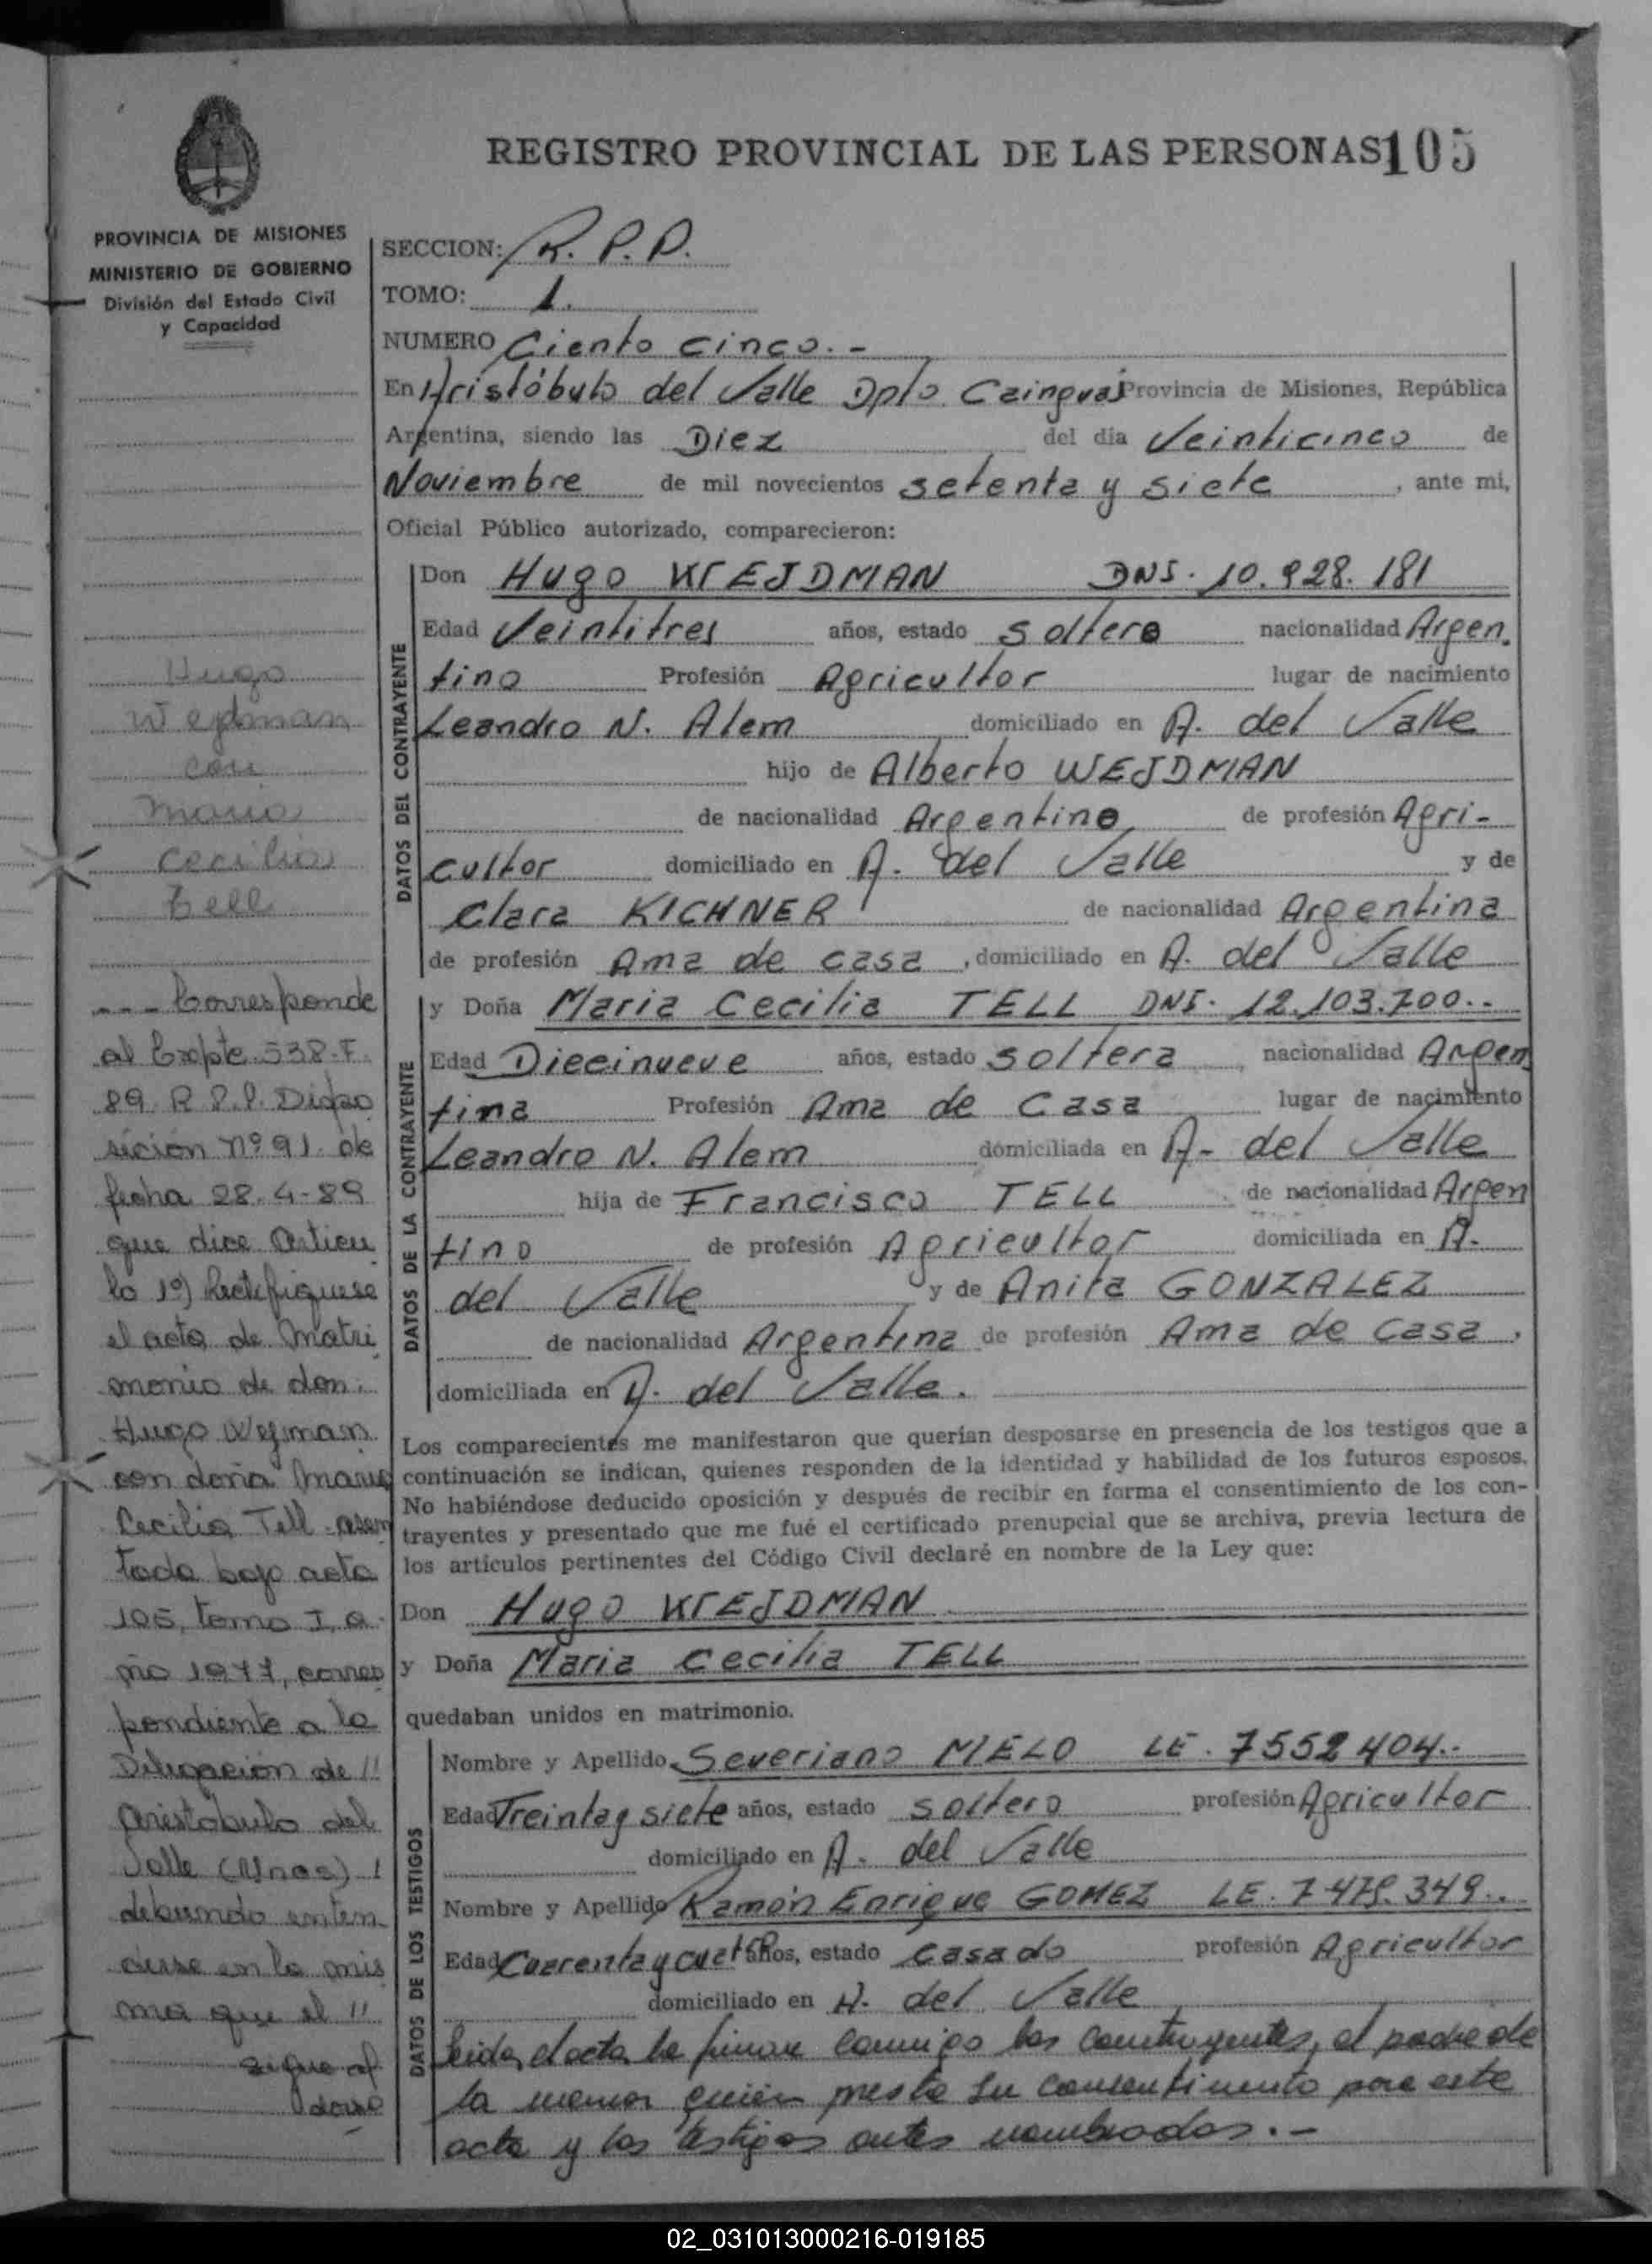 REGISTRO PROVINCIAL DE LAS PERSONAS 105
PROVINCIA DE MISIONES
MINISTERIO DE GOBIERNO
División del Estado Civil
y Capacidad
SECCION: R. P. P.
TOMO: 1.
NUMERO Ciento cinco.-
En Aristóbulo del Valle Dpto. Cainguás Provincia de Misiones, República
Argentina, siendo las Diez del día Veinticinco de
Noviembre de mil novecientos setenta y siete, ante mi,
Oficial Público autorizado, comparecieron:
DATOS DEL CONTRAYENTE
Don Hugo WEJDMAN DNI. 10.928.181
Edad Veintitres años, estado soltero nacionalidad Argen.
tino Profesión Agricultor lugar de nacimiento
Leandro N. Alem domiciliado en A. del Valle
hijo de Alberto WEJDMAN
de nacionalidad Argentino de profesión Agri-
cultor domiciliado en A. del Valle y de
Clara KICHNER de nacionalidad Argentina
de profesión Ama de casa, domiciliado en A. del Valle
DATOS DE LA CONTRAYENTE
y Doña Maria Cecilia TELL DNI. 12.103.700.-
Edad Diecinueve años, estado soltera, nacionalidad Argen
tina Profesión Ama de Casa lugar de nacimiento
Leandro N. Alem domiciliada en A- del Valle
hija de Francisco TELL de nacionalidad Argen
tino de profesión Agricultor domiciliada en A.
del Valle y de Anita GONZALEZ
de nacionalidad Argentina de profesión Ama de casa,
domiciliada en A. del Valle.
Los comparecientes me manifestaron que querían desposarse en presencia de los testigos que a
continuación se indican, quienes responden de la identidad y habilidad de los futuros esposos.
No habiéndose deducido oposición y después de recibir en forma el consentimiento de los con-
trayentes y presentado que me fué el certificado prenupcial que se archiva, previa lectura de
los artículos pertinentes del Código Civil declaré en nombre de la Ley que:
Don Hugo WEJDMAN
y Doña Maria Cecilia TELL
quedaban unidos en matrimonio.
DATOS DE LOS TESTIGOS
Nombre y Apellido Severiano MELO LE. 7552404.-
Edad Treinta y siete años, estado soltero profesión Agricultor
domiciliado en A. del Valle
Nombre y Apellido Ramón Enrique GOMEZ LE. 7.479.349..
Edad Cuarenta y cuatro años, estado casado profesión Agricultor
domiciliado en A. del Valle
Leida el acta la firman conmigo los contrayentes, el padre de
la menor quien presta su consentimiento para este
acto y los testigos antes nombrados.-
Hugo
Wejdman
con
Maria
Cecilia
Tell
--- Corresponde
al Expte 538-F
89 R P.P. Dispo
sición nº 91 de
fecha 28-4-89
que dice Articu
lo 1º) Rectifiquese
el acta de Matri
monio de don:
Hugo Wejman
con doña Maria
Cecilia Tell asen
tada bajo acta
105, tomo I, a
ño 1977, corres
pondiente a la
Delegación de "
Aristobulo del
Valle (Mnes)
debiendo enten
derse en la mis
ma que el "
sigue al
dorso
02_031013000216-019185